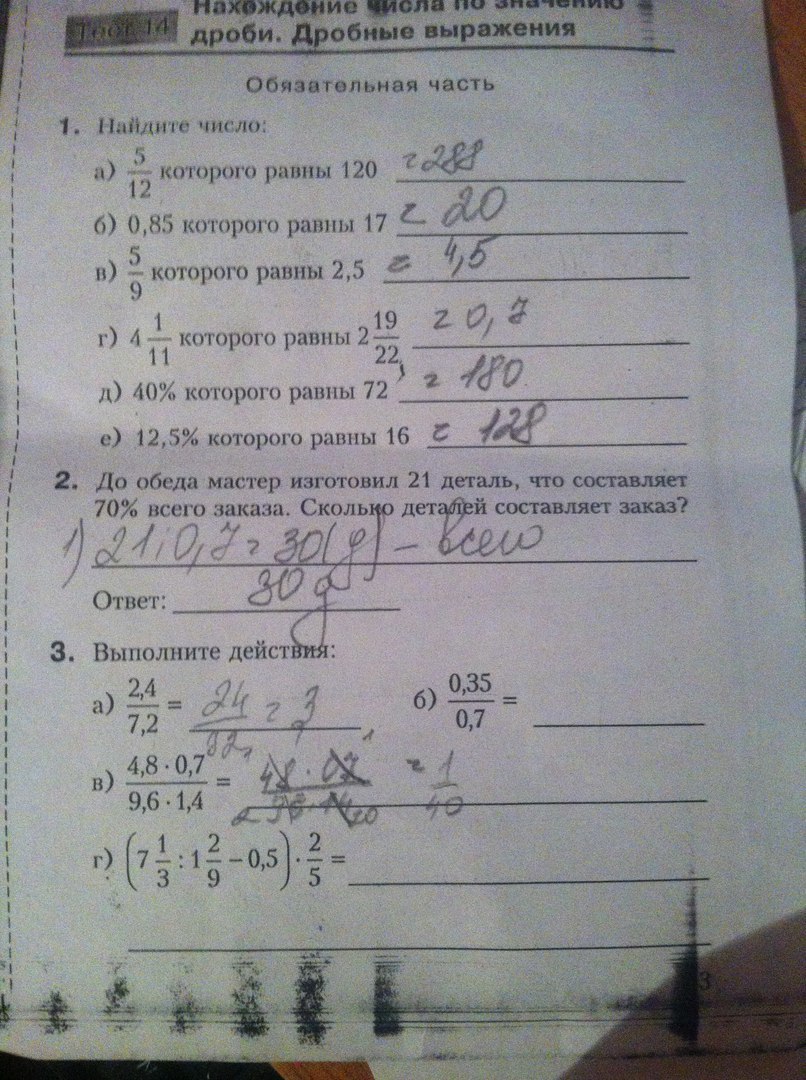 Тест 14
Нахождение числа по значению
дроби. Дробные выражения
Обязательная часть
1. Найдите число:
а) 5/12 которого равны 120 = 288
б) 0,85 которого равны 17 = 20
в) 5/9 которого равны 2,5 = 4,5
г) 4 1/11 которого равны 2 19/22 = 0,7
д) 40% которого равны 72 = 180
е) 12,5% которого равны 16 = 128
2. До обеда мастер изготовил 21 деталь, что составляет
70% всего заказа. Сколько деталей составляет заказ?
1) 21:0,7=30(д) – всего
Ответ: 30 д
3. Выполните действия:
а) 2,4/7,2 = 24 = 3 б) 0,35/0,7 =
в) 4,8 · 0,7/9,6 · 1,4 = 48 · 07 = 1/40
г) (7 1/3 : 1 2/9 – 0,5) · 2/5 =
3